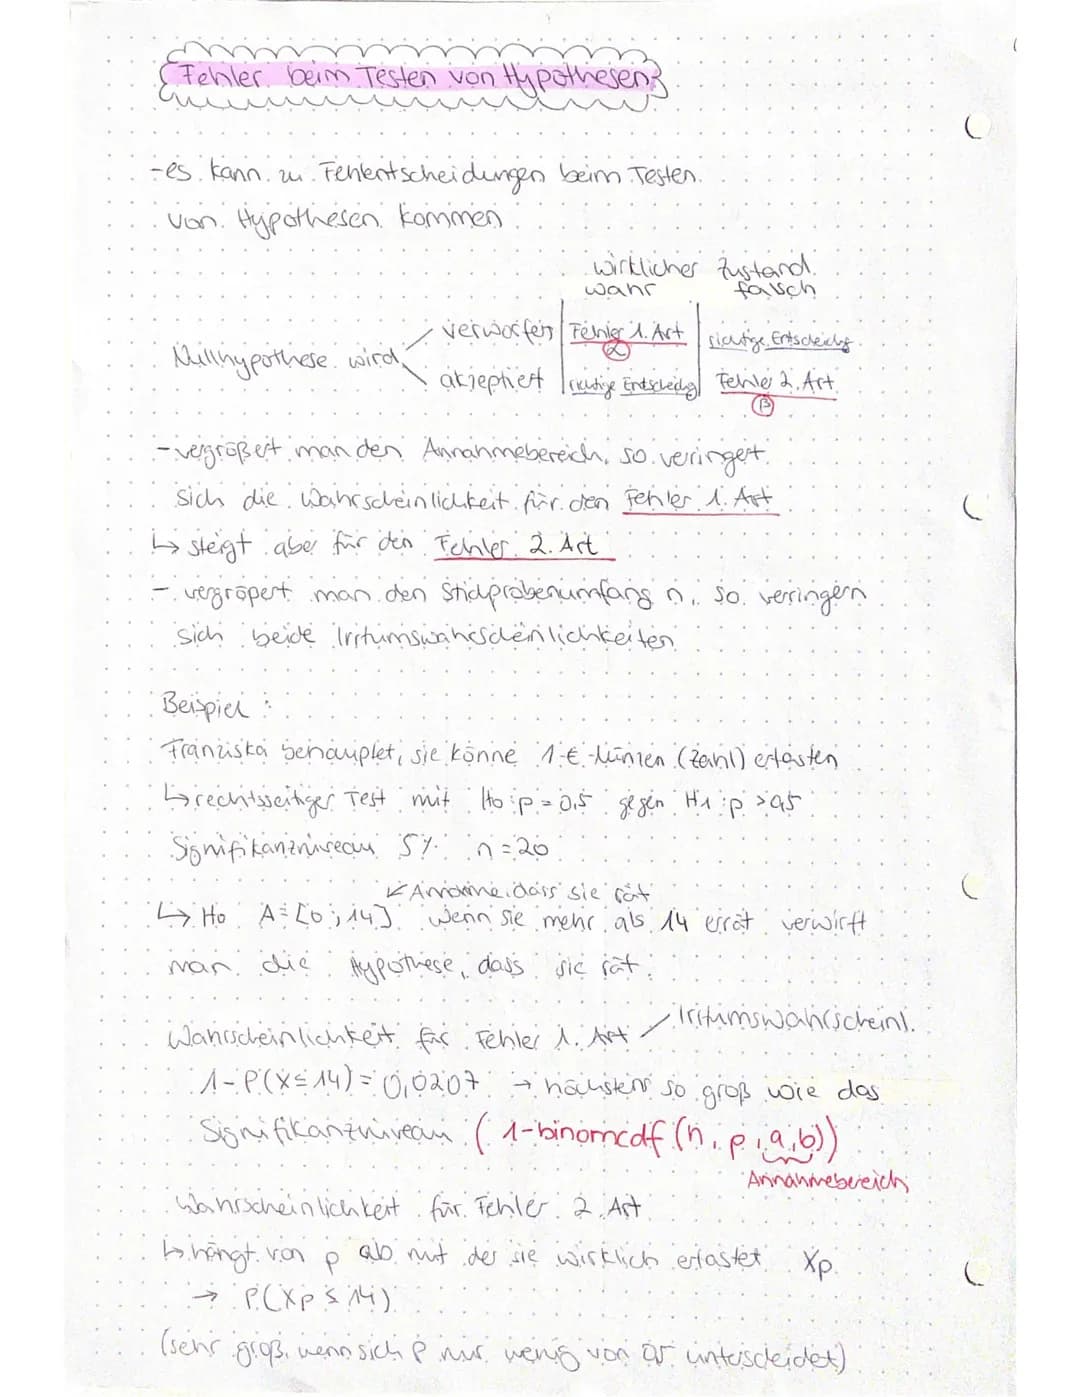 Fehler beim Testen von Hypothesen
- es kann zu Fehlentscheidungen beim Testen
von Hypothesen kommen
wirklicher Zustand
wahr falsch
Nullhypothese wird
verworfen Fehler 1. Art richtige Entscheidg
α
akzeptiert richtige Entscheidg Fehler 2. Art
β
- vergrößert man den Annahmebereich, so verringert
sich die Wahrscheinlichkeit für den Fehler 1. Art
↳ steigt aber für den Fehler 2. Art
- vergröpert man den Stichprobenumfang n, so verringern
sich beide Irrtumswahrscheinlichkeiten
Beispiel:
Franziska behauptet, sie könne 1-€-Münzen (Zahl) ertasten
↳ rechtsseitiger Test mit H0: p = 0,5 gegen H1: p > 0,5
Signifikanzniveau 5% n = 20
↙ Annahme, dass sie rät
↳ H0 A = [0 ; 14] wenn sie mehr als 14 errät verwirft
man die Hypothese, dass sie rät.
Wahrscheinlichkeit für Fehler 1. Art / Irrtumswahrscheinl.
1 - P(X ≤ 14) = 0,0207 → höchstens so groß wie das
Signifikanzniveau (1-binomcdf (n, p, a, b))
Annahmebereich
Wahrscheinlichkeit für Fehler 2. Art
↳ hängt von p ab mit der sie wirklich ertastet Xp
→ P(Xp ≤ 14)
(sehr groß, wenn sich p nur wenig von 0,5 unterscheidet)